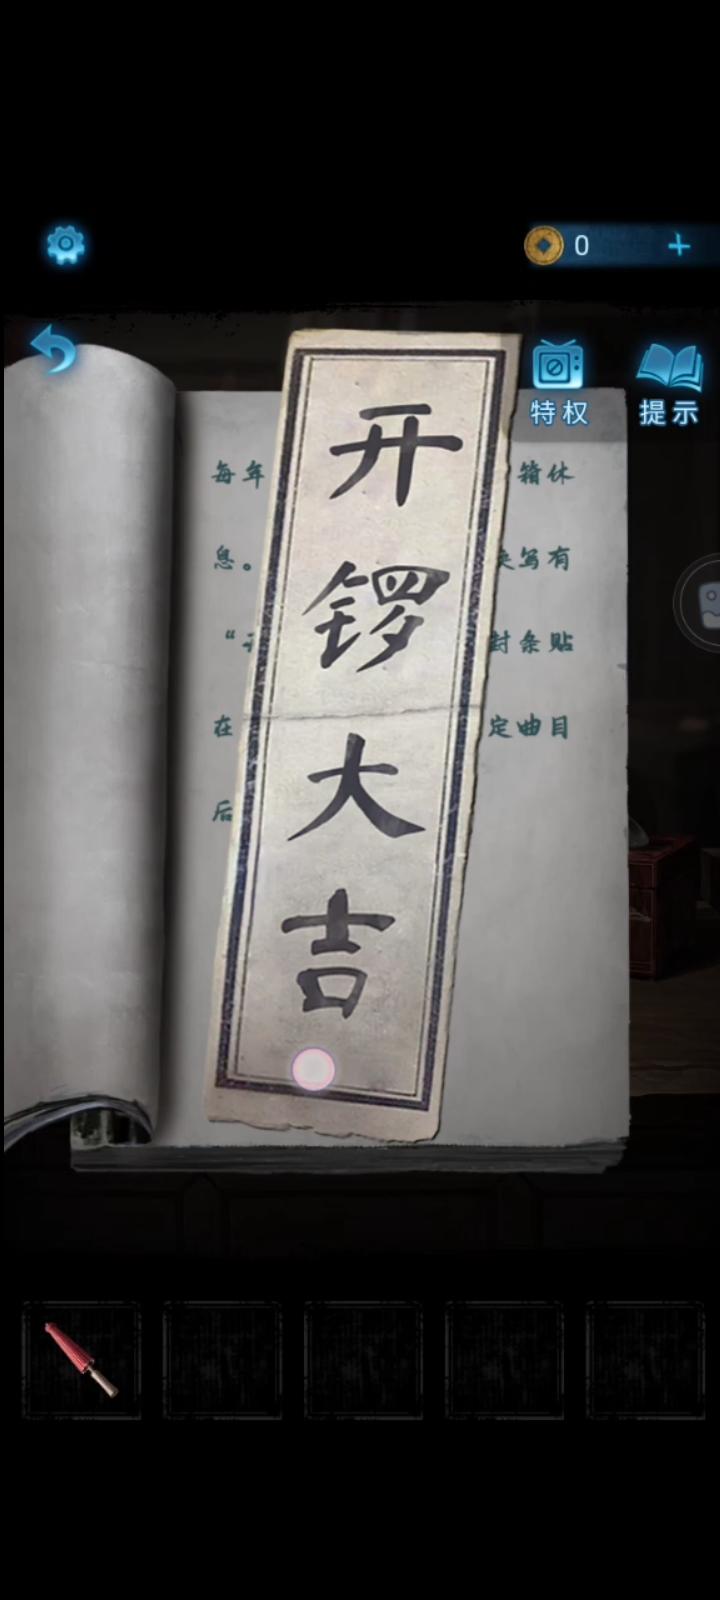 0
特权
提示
开锣大吉
每年 箱休
息。 写有
“ 封条贴
在 定曲目
后